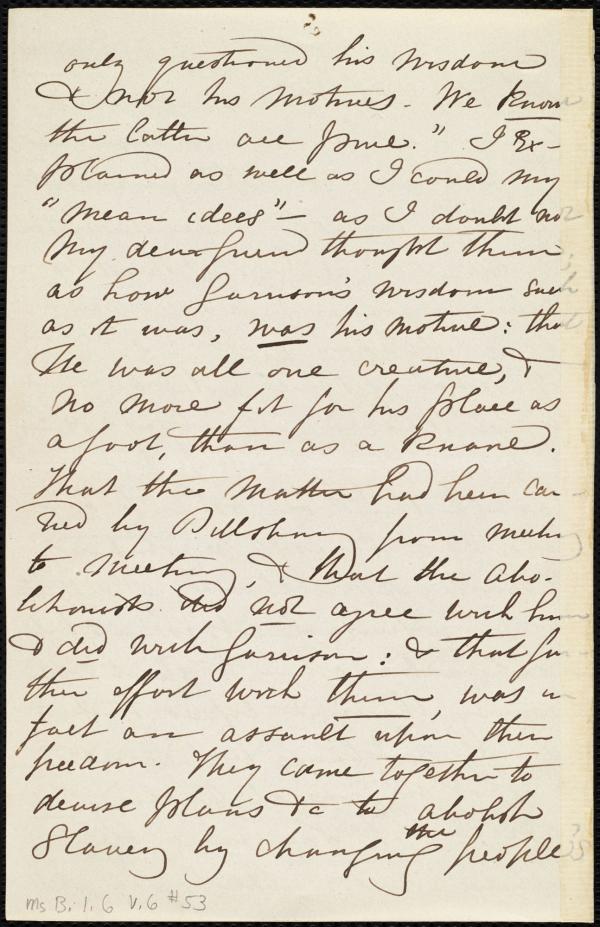 only questioned his wisdom
& not his motives. We know
the latter are pure." I ex-
plained as well as I could my
"mean idees" — as I doubt not
my dear friend thought them,
as how Garrison's wisdom such
as it was, was his motive: that
He was all one creature, &
no more fit for his place as
a fool, than as a knave.
That the matter had been car-
ried by Pillsbury from meeting
to meeting, & that the abo-
litionists did not agree with him
& did with Garrison: & that fur
ther effort with them, was in
fact an assault upon their
freedom. They came together to
devise plans &c to abolish
Slavery by changing the people's
Ms B. 1. 6 V. 6 #53